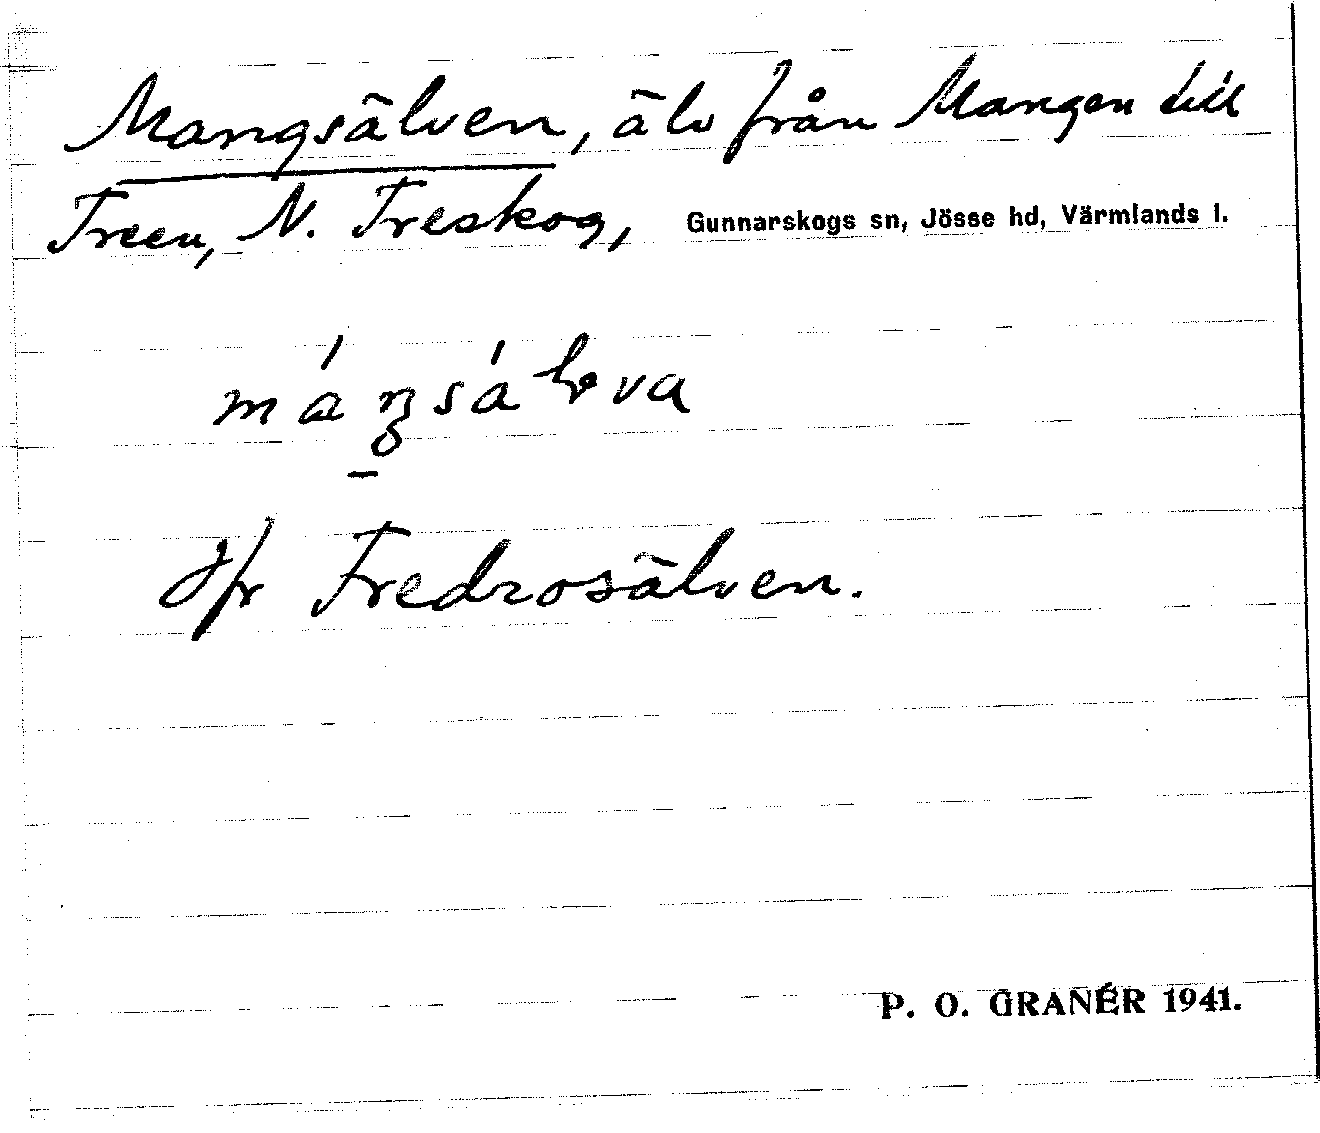 Mangsälven, älv från Mangen till
Treen, N. Treskog, Gunnarskogs sn, Jösse hd, Värmlands l.
Jfr Fredrosälven.
P. O. GRANÉR 1941.